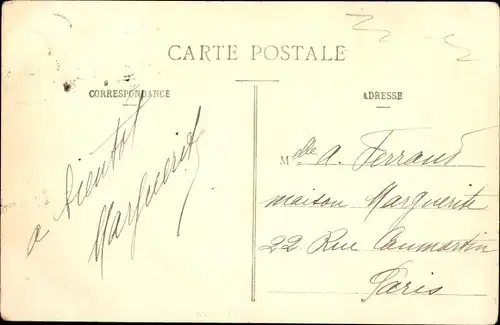 CARTE POSTALE
CORRESPONDANCE
ADRESSE
a bientot
Marguerite
Melle A. Ferrand
maison Marguerite
22 Rue Caumartin
Paris